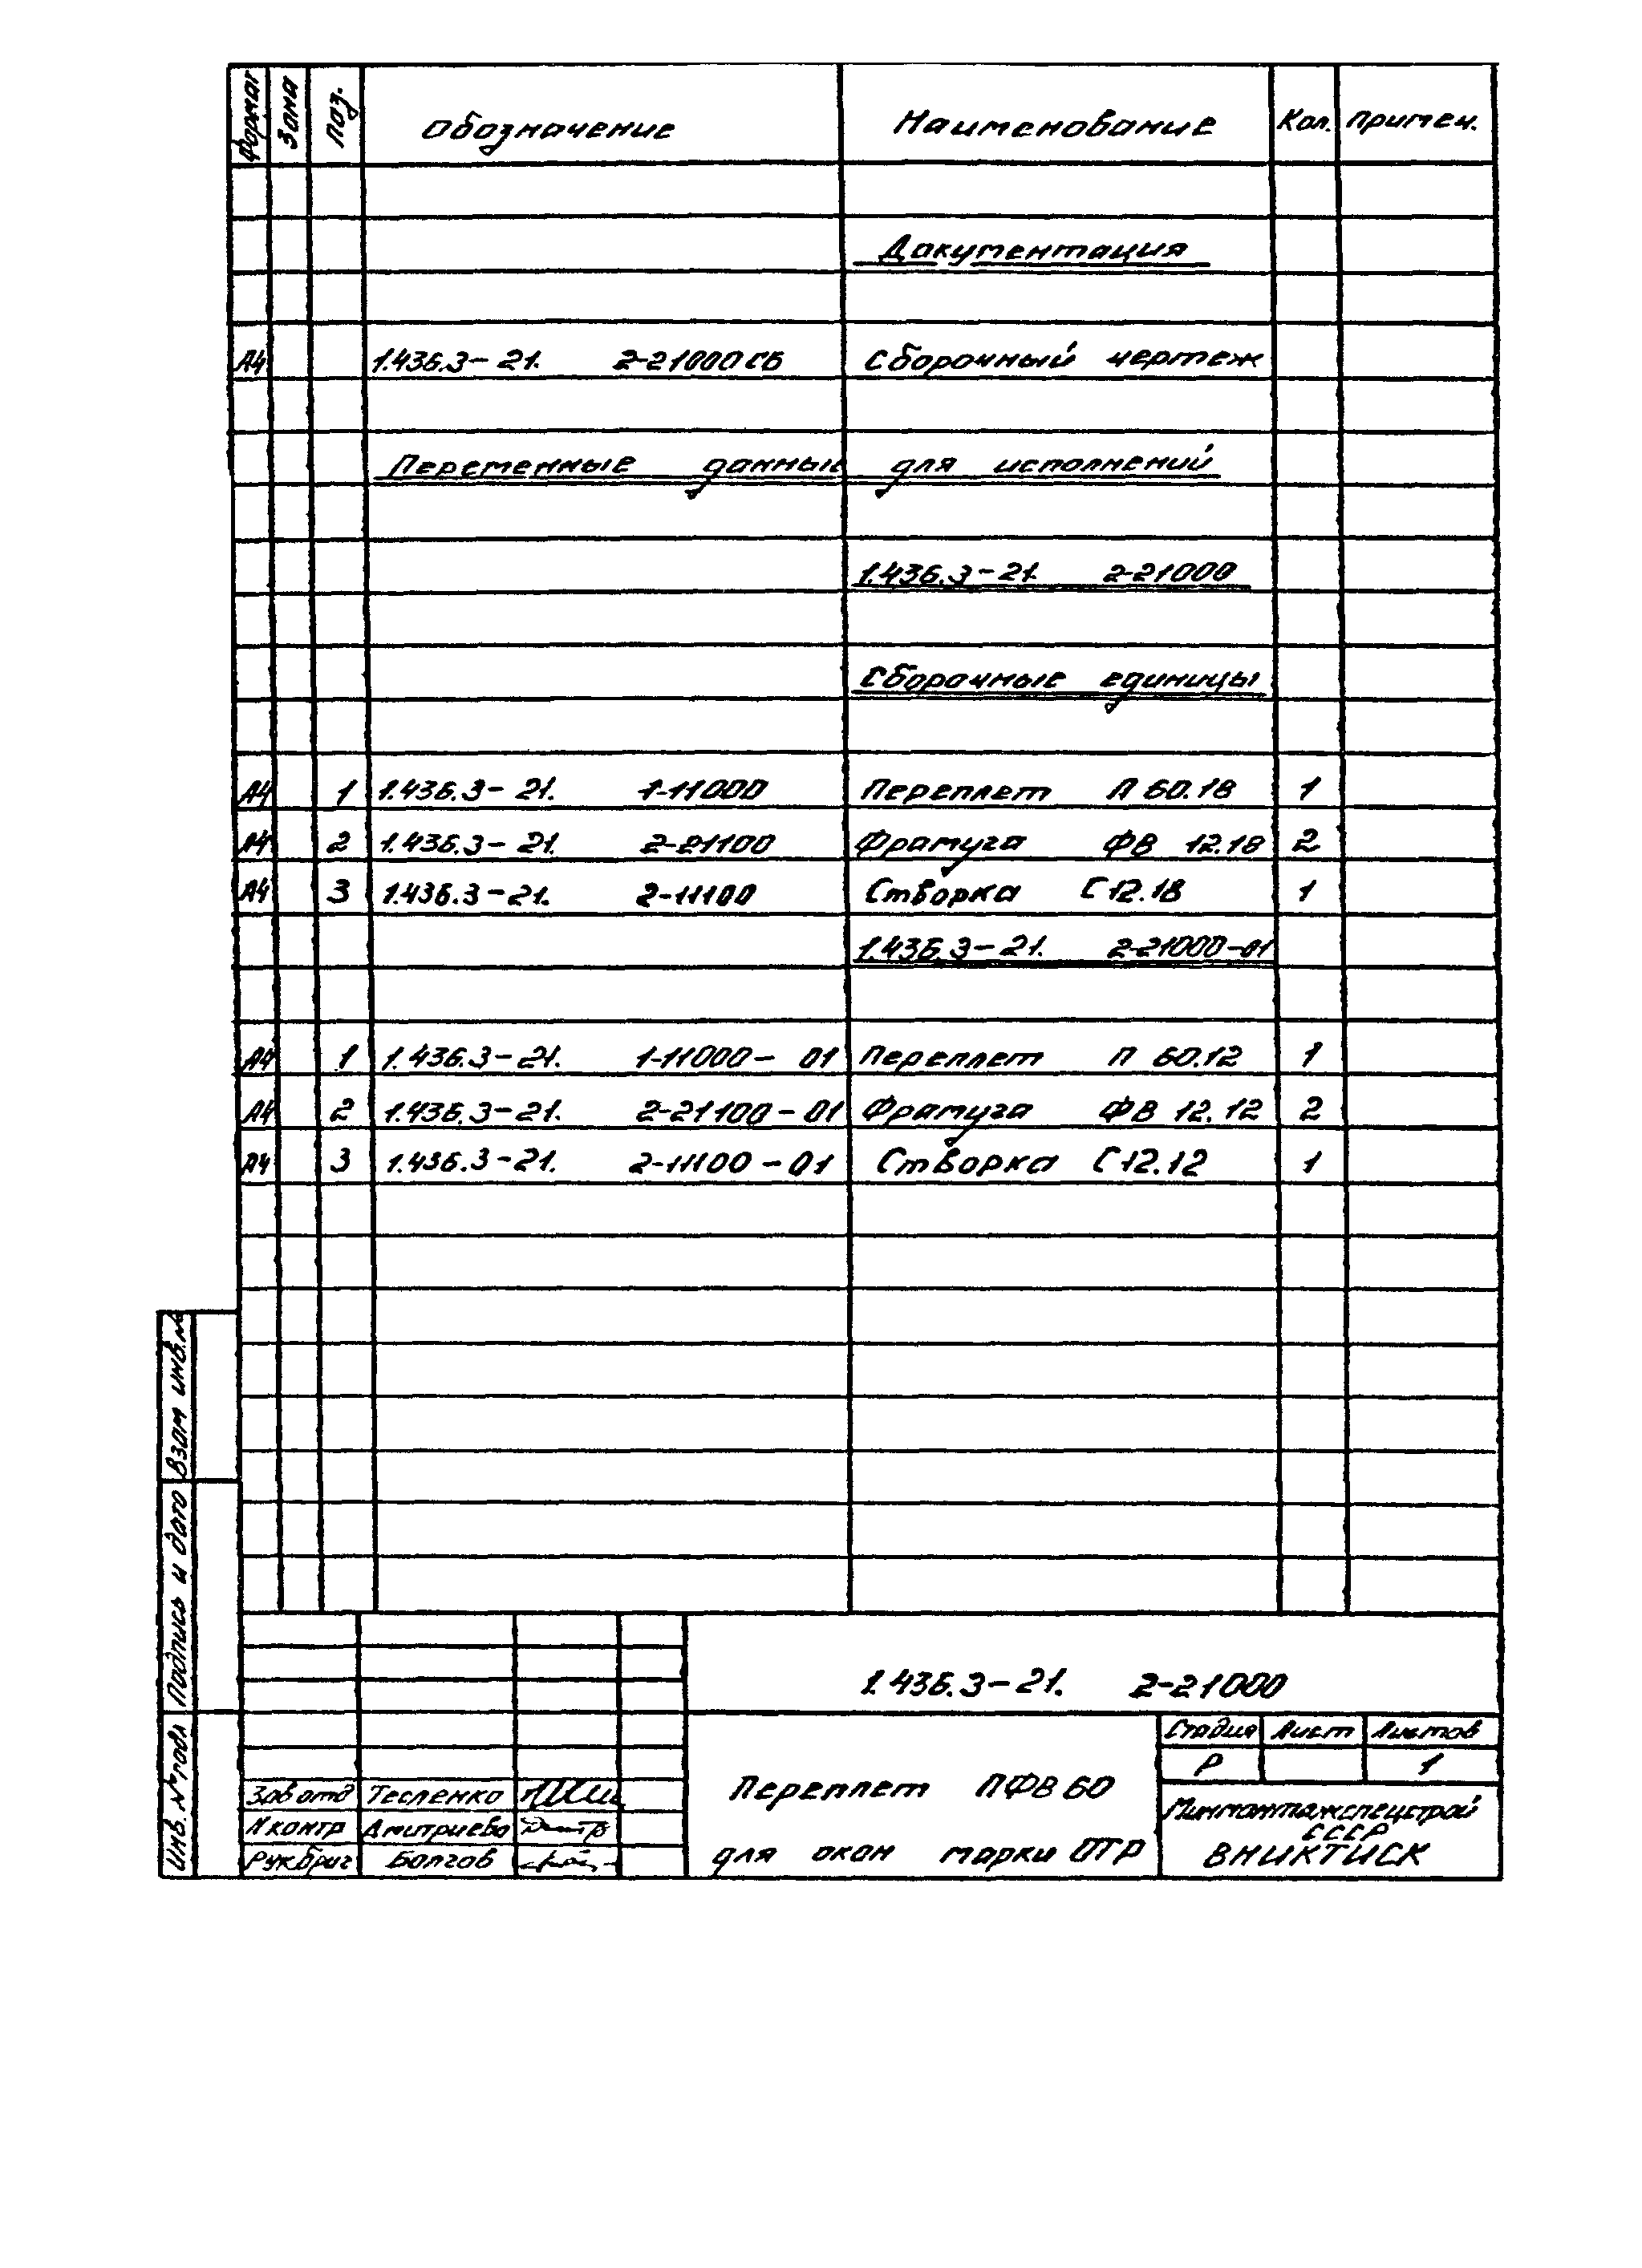 Формат Зона Поз. Обозначение Наименование Кол. Примеч.
Документация
А4 1.436.3-21. 2-21000СБ Сборочный чертеж
Переменные данные для исполнений
1.436.3-21. 2-21000
Сборочные единицы
А4 1 1.436.3-21. 1-11000 Переплет П 60.18 1
А4 2 1.436.3-21. 2-21100 Фрамуга ФВ 12.18 2
А4 3 1.436.3-21. 2-11100 Створка С12.18 1
1.436.3-21. 2-21000-01
А4 1 1.436.3-21. 1-11000-01 Переплет П 60.12 1
А4 2 1.436.3-21. 2-21100-01 Фрамуга ФВ 12.12 2
А4 3 1.436.3-21. 2-11100-01 Створка С12.12 1
Взам инв.№
Подпись и дата
Инв. № подл
1.436.3-21. 2-21000
Стадия Лист Листов
Р 1
Переплет ПФВ 60
для окон марки ОТР
Зав отд Тесленко
Н контр Дмитриева
Рук.бриг Болгов
Минмонтажспецстрой
СССР
ВНИКТИСК